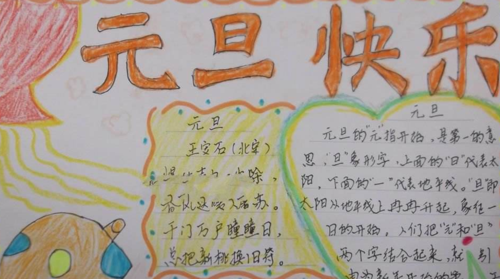 元旦快乐
元旦
王安石(北宋)
除,
春风送暖入屠苏。
千门万户曈曈日,
总把新桃换旧符。
元旦
元旦的“元”指开始,是第一的意
思,“旦”象形字,上面的“日”代表太
阳,下面的“一”代表地平线。“旦”即
太阳从地平线上冉冉升起,象征一
日的开始。人们把“元”和“旦”
两个字结合起来,就引